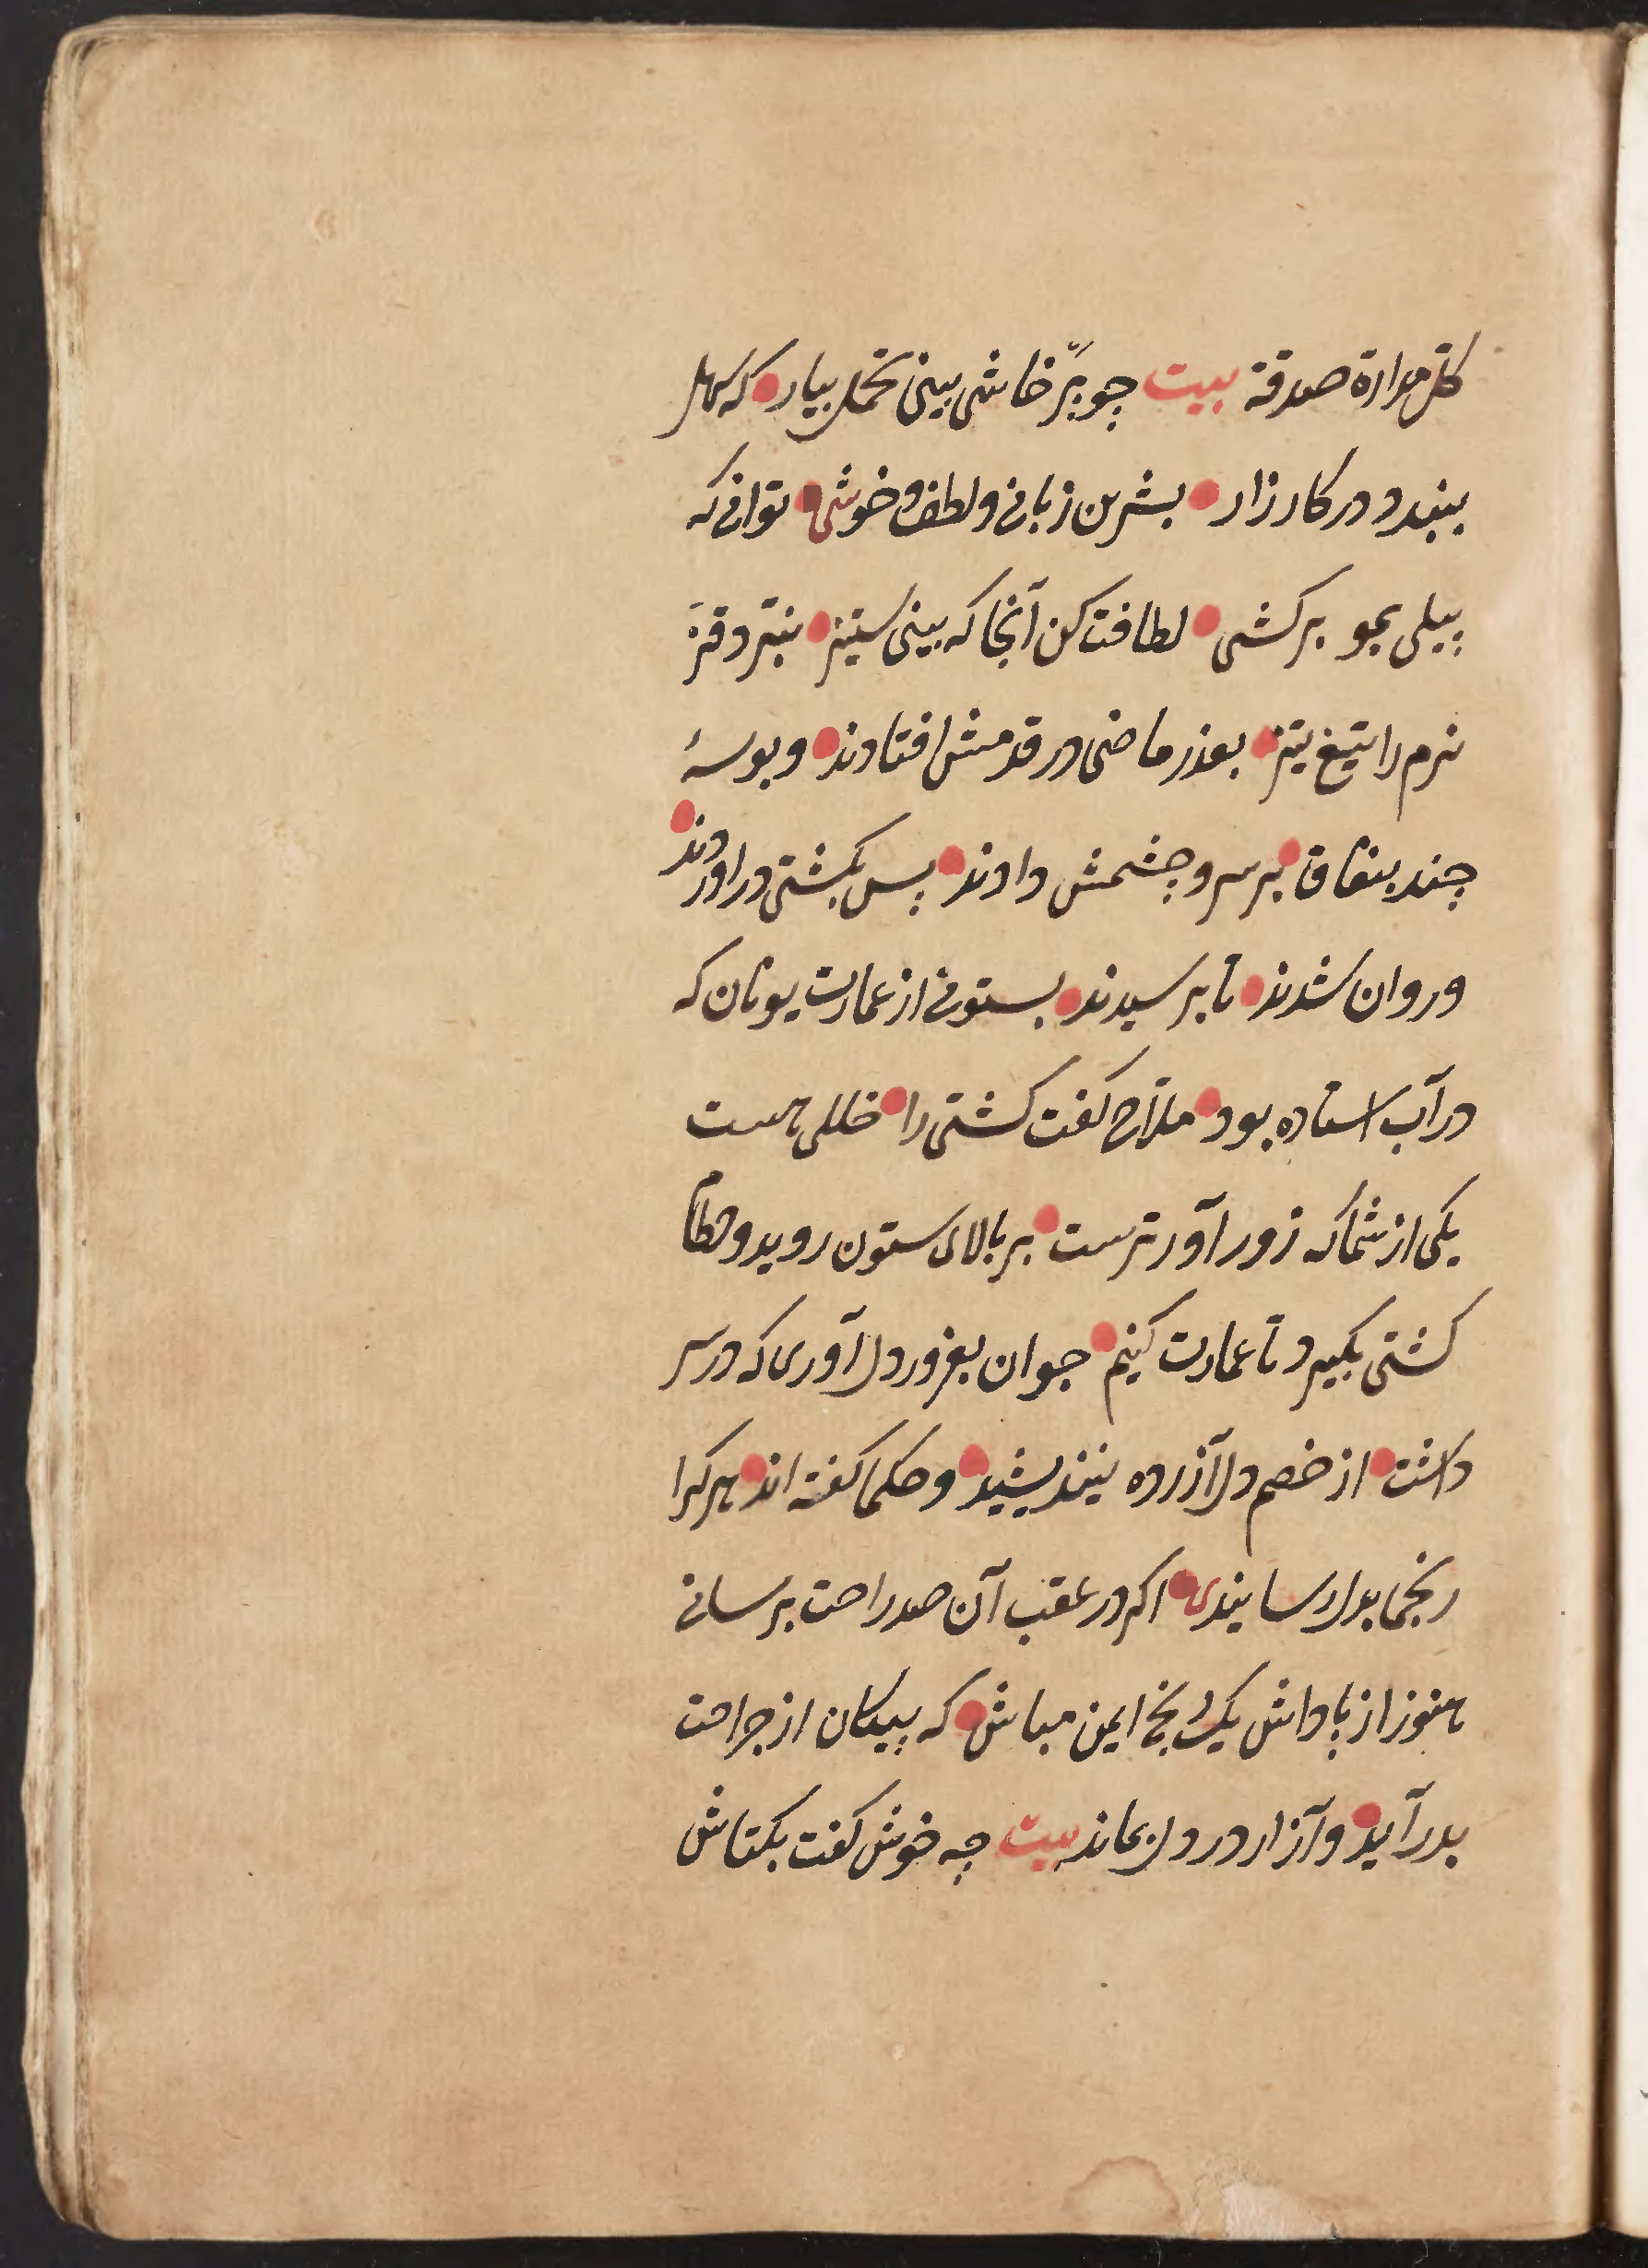 کل مداراة صدقة بیت چو پرخاش بینی تحمل بیار که سهل
ببندد در کارزار بشیرین زبانی ولطف وخوشی توانی که
پیلی بمو برکشی لطافت کن آنجا که بینی ستیز نبرّد قز
نرم را تیغ تیز بعذر ماضی در قدمش افتادند و بوسهٔ
چند بنفاق بر سر و چشمش دادند پس بکشتی در اوردند
و روان شدند تا برسیدند بستونی از عمارت یونان که
در آب استاده بود ملاح گفت کشتی را خللی هست
یکی از شما که زور آورترست بر بالای ستون رود و خطام
کشتی بگیرد تا عمارت کنیم جوان بغرور دل آوری که در سر
داشت از خصم دل آزرده نیندیشید و حکما گفته اند هر کرا
رنجی بدل رسانیدی اگر در عقب آن صد راحت برسانی
هنوز از پاداش یک رنج ایمن مباش که پیکان از جراحت
بدر آید و آزار در دل بماند بیت چه خوش گفت بکتاش